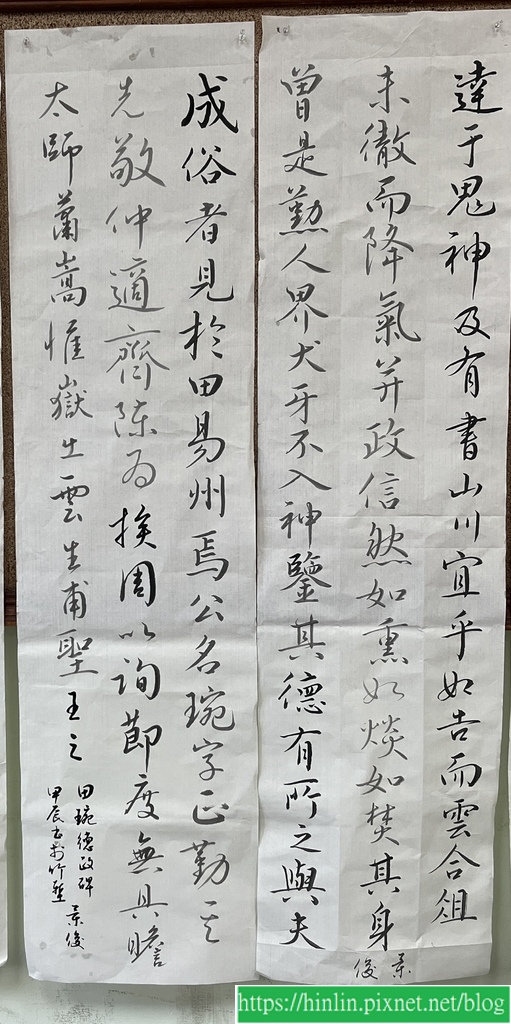 達于鬼神及有書山川宜乎如吉而雲合俎
未徹而降氣并政信然如熏如焱如焚其身
曾是懃人界犬牙不入神鑒其德有所之與夫
景俊
成俗者見於田易州焉公名琬字正勤其
先敬仲適齊陳為挨周以詢節度無具瞻
太師蕭嵩惟嶽生雲生甫聖王之
田琬德政碑 景俊
甲辰書於竹塹
https://hinlin.pixnet.net/blog